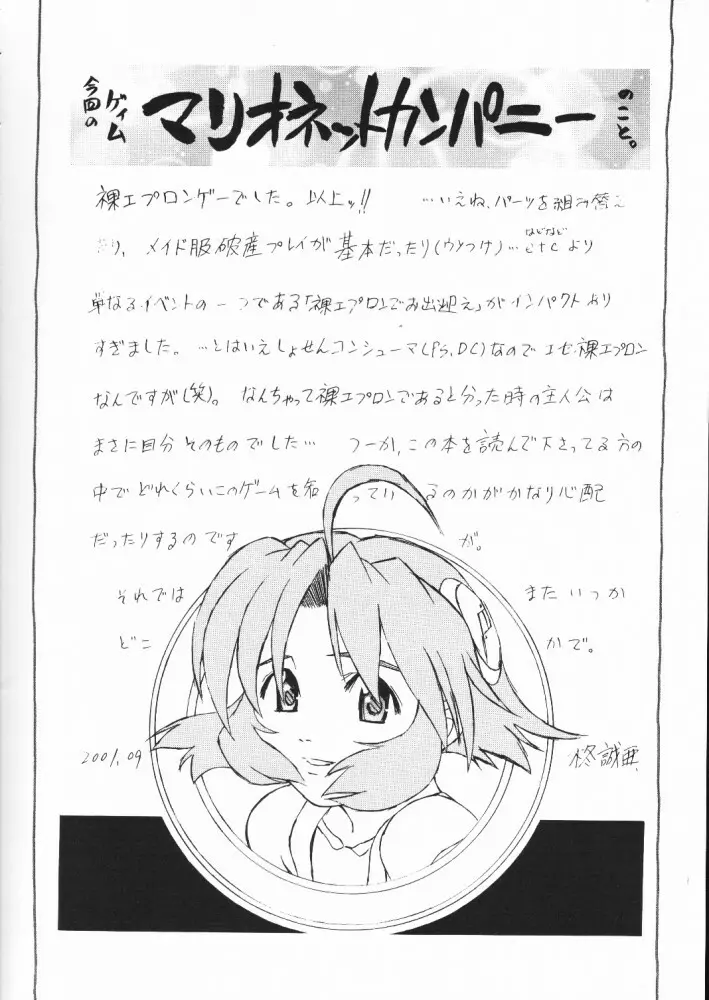 今回の
ゲイム
マリオネットカンパニー
のこと。
裸エプロンゲーでした。以上ッ!! …いえね、パーツを組み替え
り、メイド服破産プレイが基本だったり(ウソつけ)…etcより
などなど
単なるイベントの一つである「裸エプロンでお出迎え」がインパクトあり
すぎました。…とはいえしょせんコンシューマ(PS,DC)なのでエセ裸エプロン
なんですが(笑)。なんちゃって裸エプロンであると分った時の主人公は
まさに自分そのものでした… つーか、この本を読んで下さってる方の
中でどれくらいこのゲームを知っているのかがかなり心配
だったりするのですが。
それでは またいつか
どこかで。
2001.09
柊誠亜